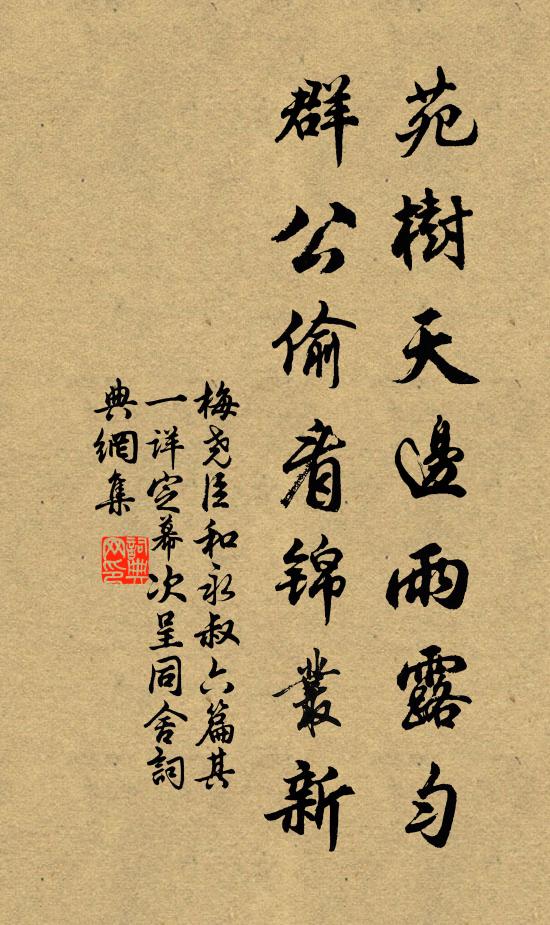 苑樹天邊雨露勻
群公偷看錦叢新
梅堯臣和永叔六篇其
一詳定幕次呈同舍詞
典網集
詞典網印